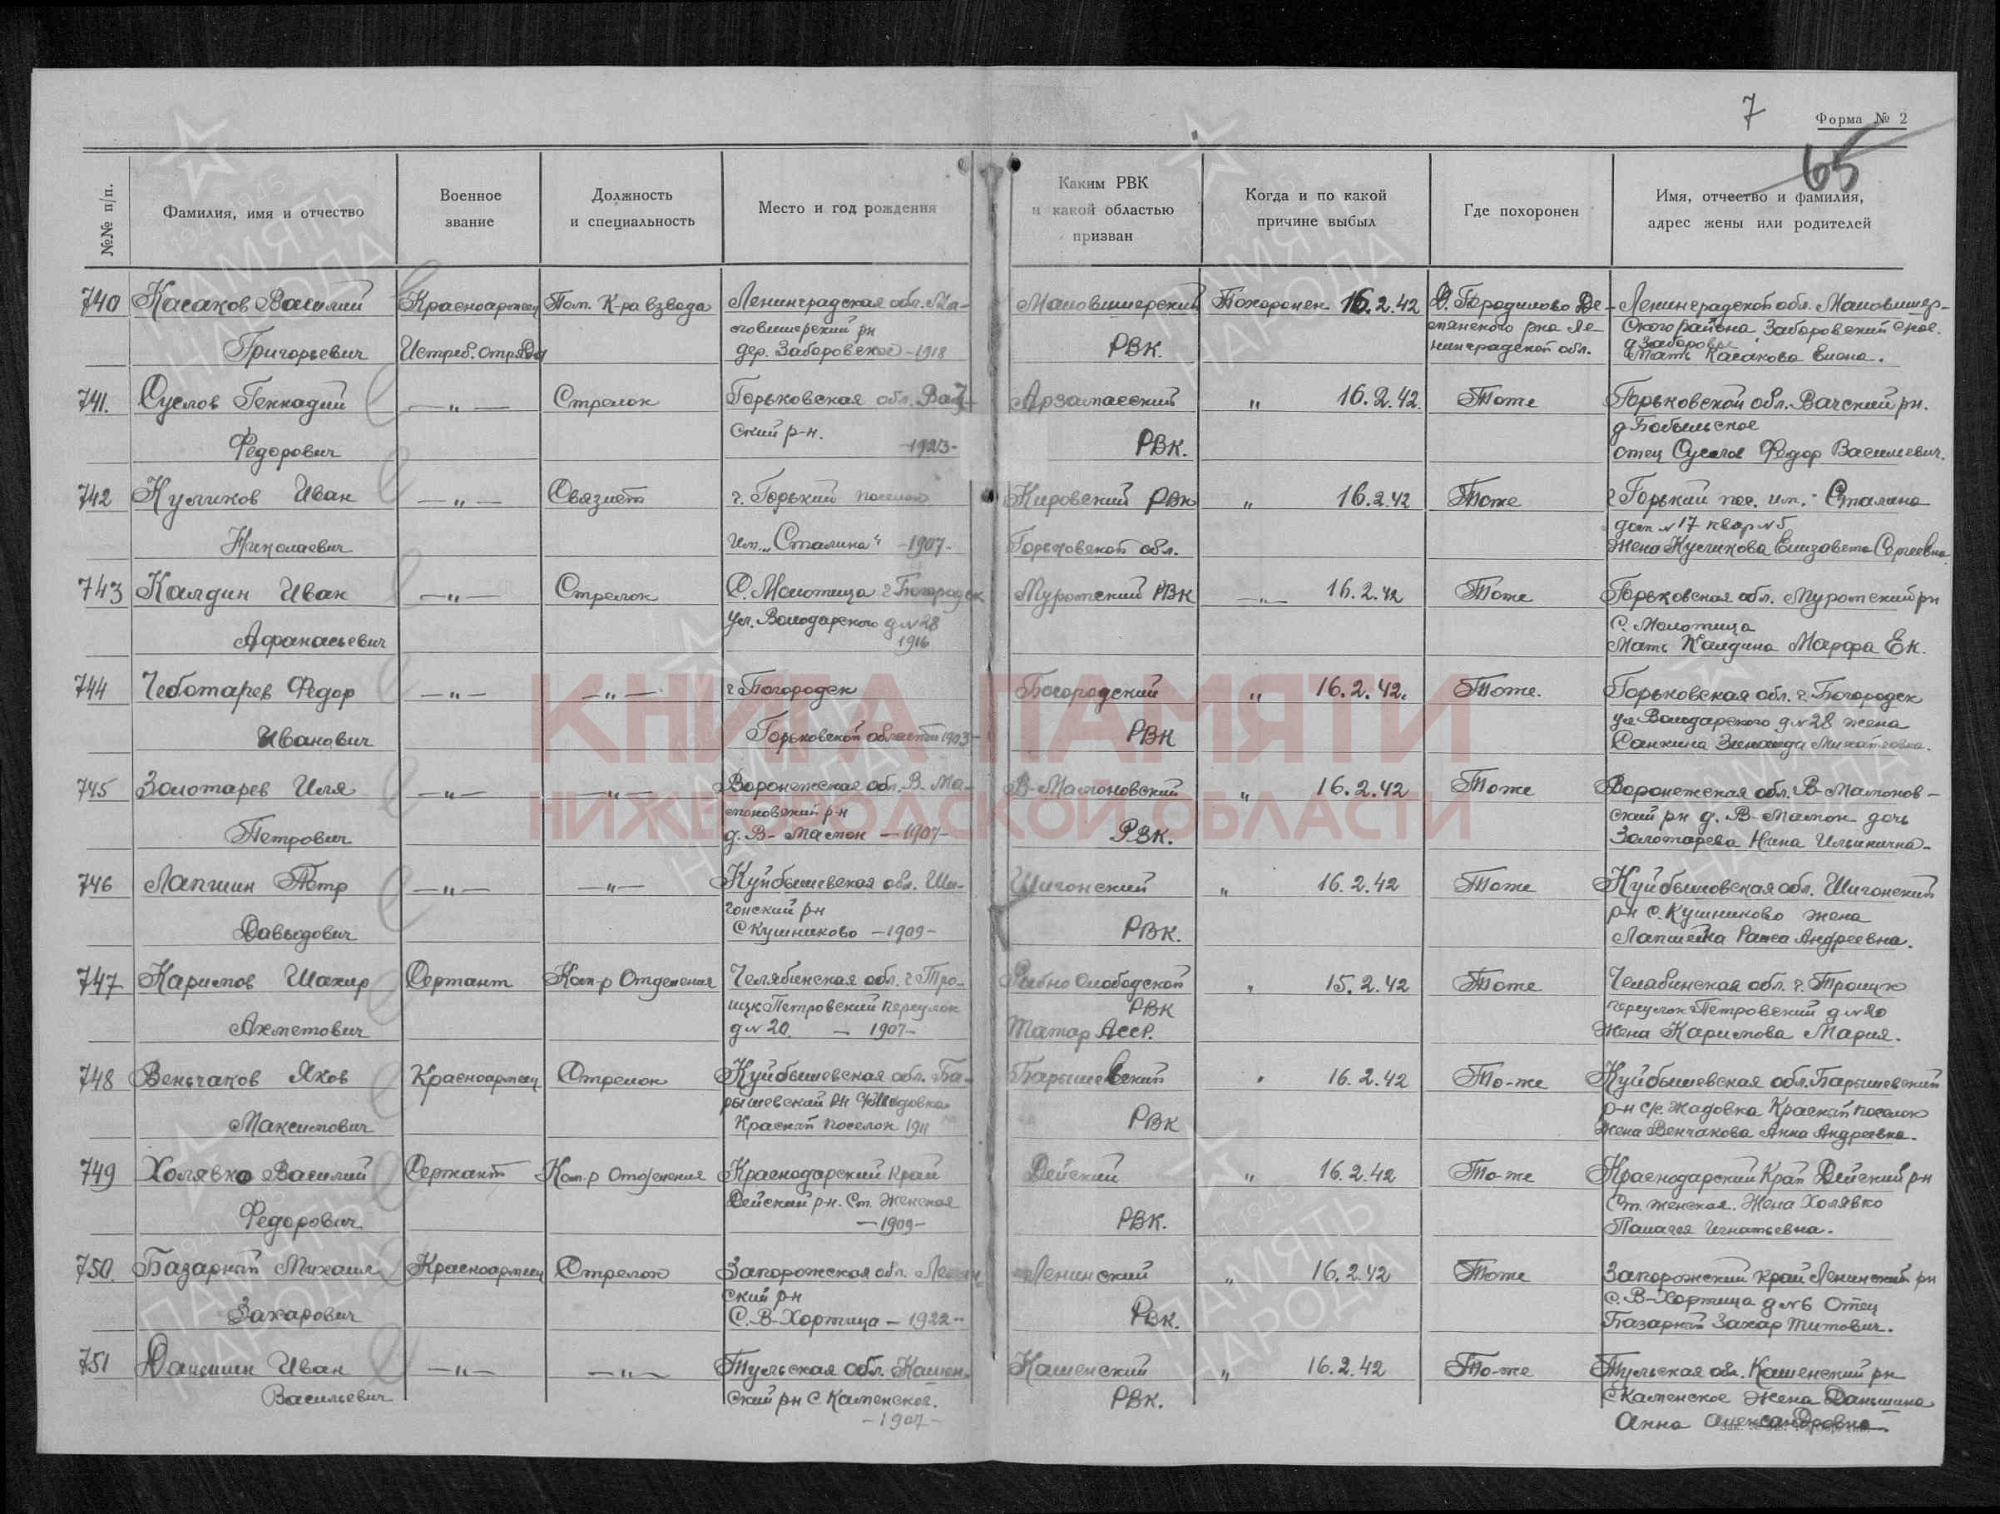 7
Форма № 2
65
№№ п/п.
Фамилия, имя и отчество
Военное звание
Должность и специальность
Место и год рождения
Каким РВК и какой областью призван
Когда и по какой причине выбыл
Где похоронен
Имя, отчество и фамилия, адрес жены или родителей
740 Касаков Василий Красноармеец Пом. К-ра взвода Ленинградская обл. Ма- Маловишерский Похоронен 16.2.42 Ленинградской обл. Маловишер-
ловишерский рн ского района Заборовский
Григорьевич Истреб. отряда дер. Заборовское -1918 РВК. нинградской обл. Мать Касакова Елена.
741. Суслов Геннадий —„— Стрелок Горьковская обл. Вач- Арзамасский „ 16.2.42. Тоже Горьковской обл. Вачский рн.
ский р-н. д Бобыльское
Федорович -1923- РВК. отец Суслов Федор Васильевич.
742 Куликов Иван —„— Связист г. Горький поселок Кировский РВК „ 16.2.42 Тоже г Горький пос. им. Сталина
дом №17 квар №5
Николаевич им. „Сталина“ -1907- Горьковской обл. Жена Куликова Елизавета Сергеевна
743 Калдин Иван —„— Стрелок С. Молотица г Богородск Муромский РВК —„— 16.2.42 Тоже Горьковская обл. Муромский рн
ул. Володарского д №28 С. Молотица
Афанасьевич 1916 Мать Калдина Марфа Ек.
744 Чеботарев Федор —„— —„— г Богородск Богородский „ 16.2.42. Тоже. Горьковская обл. г. Богородск
ул Володарского д №28 жена
Иванович Горьковской области 1903- РВК Санкина Зинаида
745 Золотарев Илья —„— —„— Воронежская обл. В. Ма- В-Мамоновский „ 16.2.42 Тоже Воронежская обл. В-Мамонов-
моновский р-н ский рн д. В-Мамон дочь
Петрович д. В-Мамон -1907- РВК. Золотарева Нина Ильинична-
746 Лапшин Петр —„— —„— Куйбышевская обл. Ши- Шигонский „ 16.2.42 Тоже Куйбышевская обл. Шигонский
гонский рн рн с. Кушниково жена
Давыдович С Кушниково -1909- РВК. Лапшейна Раиса Андреевна.
747 Каримов Шакир Сержант Ком-р Отделения Челябинская обл. г Тро- Рыбно Слободской „ 15.2.42 Тоже Челябинская обл. г. Троицк
ицк Петровский переулок РВК переулок Петровский д №20
Ахметович д №20. — 1907- Татар Асср. Жена Каримова Мария.
748 Веньчаков Яков Красноармеец Стрелок Куйбышевская обл. Ба- Барышевский „ 16.2.42 То-же Куйбышевская обл. Барышевский
рышевский рн с/с Жадовка р-н с/с. Жадовка Красный поселок
Максимович Красный поселок 1911 РВК Жена Венчакова Анна Андреевна.
749 Холявко Василий Сержант Ком-р Отделения Краснодарский край Дейский „ 16.2.42 То-же Краснодарский Край Дейский рн
Дейский р-н. Ст. Женская Ст. Женская. Жена Холявко
Федорович -1909- РВК. Палагея Игнатьевна.
750. Базарный Михаил Красноармеец Стрелок Запорожская обл. Ленин Ленинский „ 16.2.42 Тоже Запорожский край Ленинский рн
ский рн С. В-Хортица д №6 Отец
Захарович С. В-Хортица - 1922- РВК. Базарный Захар Титович.
751 Даньшин Иван —„— —„— Тульская обл. Камен- Каменский „ 16.2.42 То-же Тульская обл. Каменский рн
Васильевич ский рн С Каменское. РВК. С Каменское Жена Даньшина
-1907- Анна Александровна
КНИГА ПАМЯТИ
НИЖЕГОРОДСКОЙ ОБЛАСТИ
ПАМЯТЬ НАРОДА
1941-1945